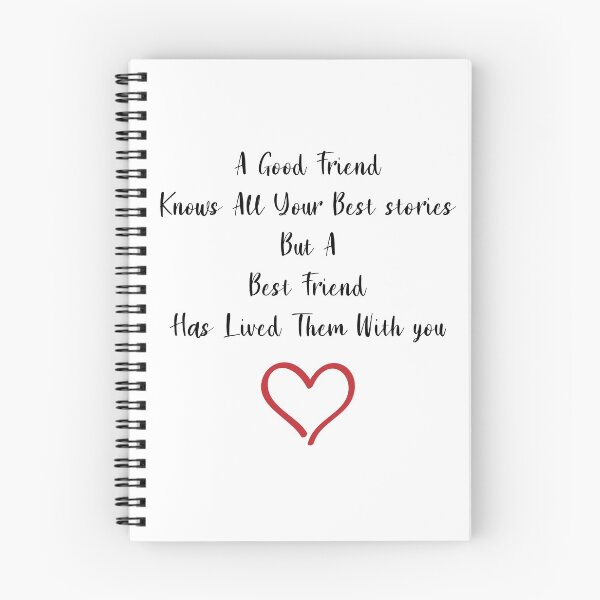 A Good Friend
Knows All Your Best stories
But A
Best Friend
Has Lived Them With you